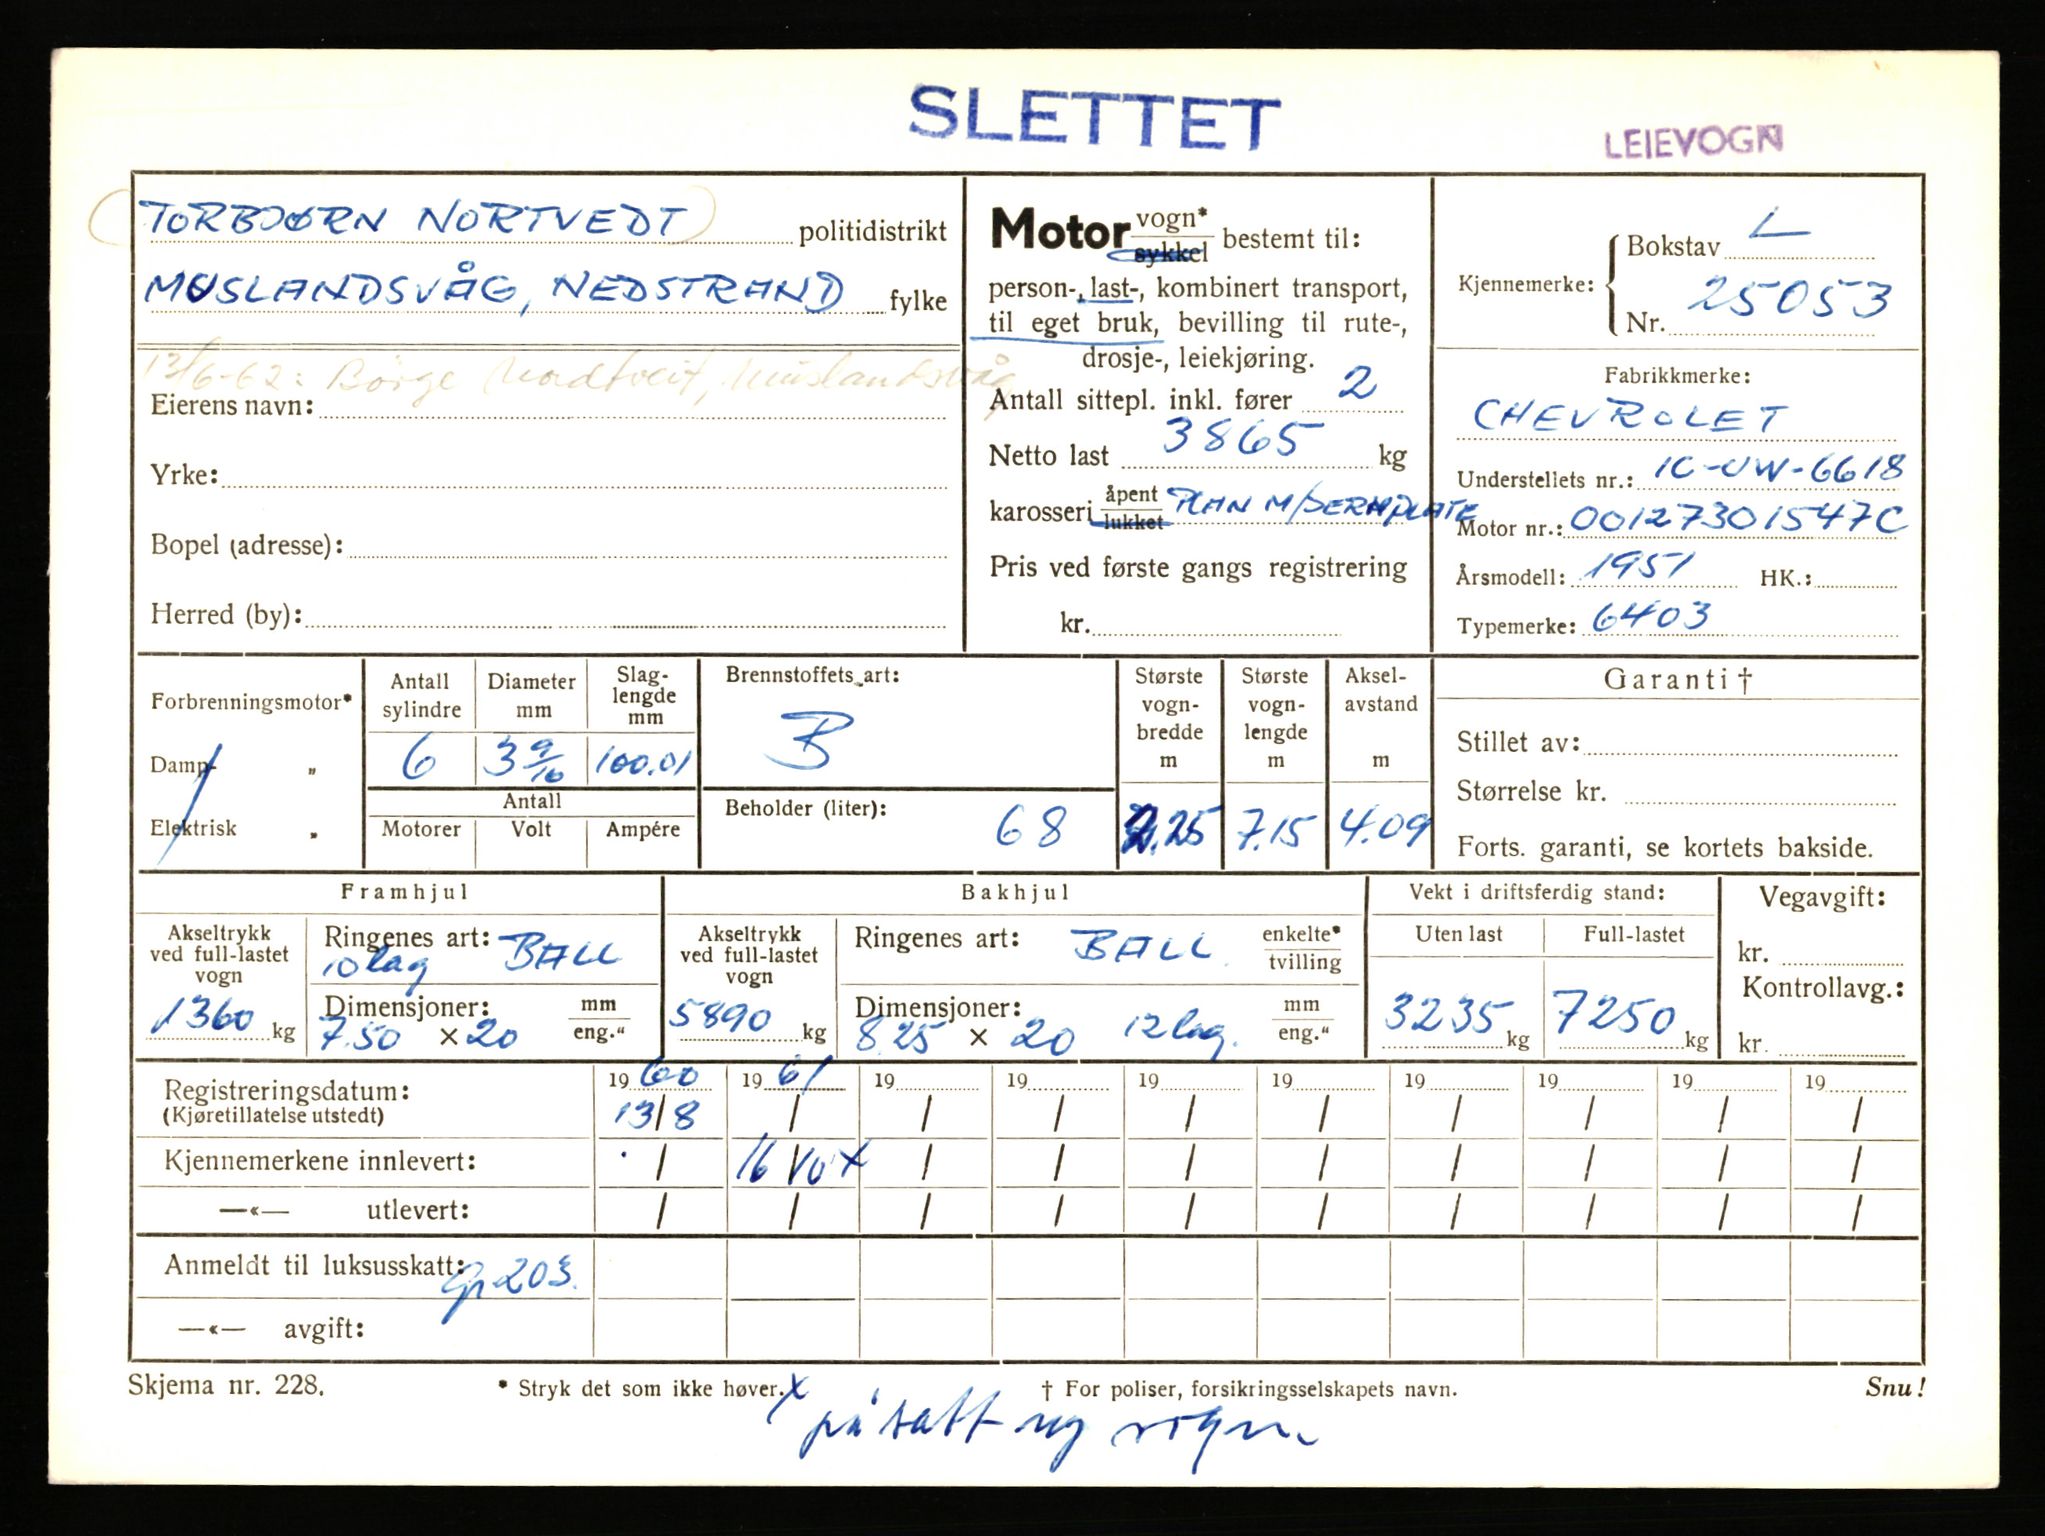 SLETTET
LEIEVOGN
TORBJØRN NORTVEDT politidistrikt
MUSLANDSVÅG, NEDSTRAND fylke
13/6-62: Börge Nordtveit, Muslandsvåg,
Eierens navn:
Yrke:
Bopel (adresse):
Herred (by):
Motor vogn* sykkel bestemt til:
person-, last-, kombinert transport,
til eget bruk, bevilling til rute-,
drosje-, leiekjøring.
Antall sittepl. inkl. fører 2
Netto last 3865 kg
karosseri åpent lukket PLAN M/SERMPLATE
Pris ved første gangs registrering
kr.
Kjennemerke: Bokstav L
Nr. 25053
Fabrikkmerke:
CHEVROLET
Understellets nr.: 1C-UW-6618
Motor nr.: 00127301547C
Årsmodell: 1951 HK.:
Typemerke: 6403
Forbrenningsmotor*
Damp- „
Elektrisk „
Antall sylindre
6
Diameter mm
3 9/16
Slag-lengde mm
100.01
Antall
Motorer Volt Ampére
Brennstoffets art:
B
Beholder (liter): 68
Største vogn-bredde m
2.25
Største vogn-lengde m
7.15
Aksel-avstand m
4.09
Garanti †
Stillet av:
Størrelse kr.
Forts. garanti, se kortets bakside.
Framhjul
Akseltrykk ved full-lastet vogn
1360 kg
Ringenes art: BALL
10 lag
Dimensjoner: mm
7.50 × 20 eng."
Bakhjul
Akseltrykk ved full-lastet vogn
5890 kg
Ringenes art: BALL enkelte* tvilling
Dimensjoner: mm
8.25 × 20 12 lag. eng."
Vekt i driftsferdig stand:
Uten last Full-lastet
3235 kg 7250 kg
Vegavgift:
kr.
Kontrollavg.:
kr.
Registreringsdatum: 19 60 19 61 19 19 19 19 19 19 19 19
(Kjøretillatelse utstedt) 13/8 / / / / / / / / /
Kjennemerkene innlevert: / 16/10 x / / / / / / / /
—«— utlevert: / / / / / / / / / /
Anmeldt til luksusskatt: Gr 203.
—«— avgift:
Skjema nr. 228. * Stryk det som ikke høver. † For poliser, forsikringsselskapets navn. Snu!
x påsatt ny vogn.